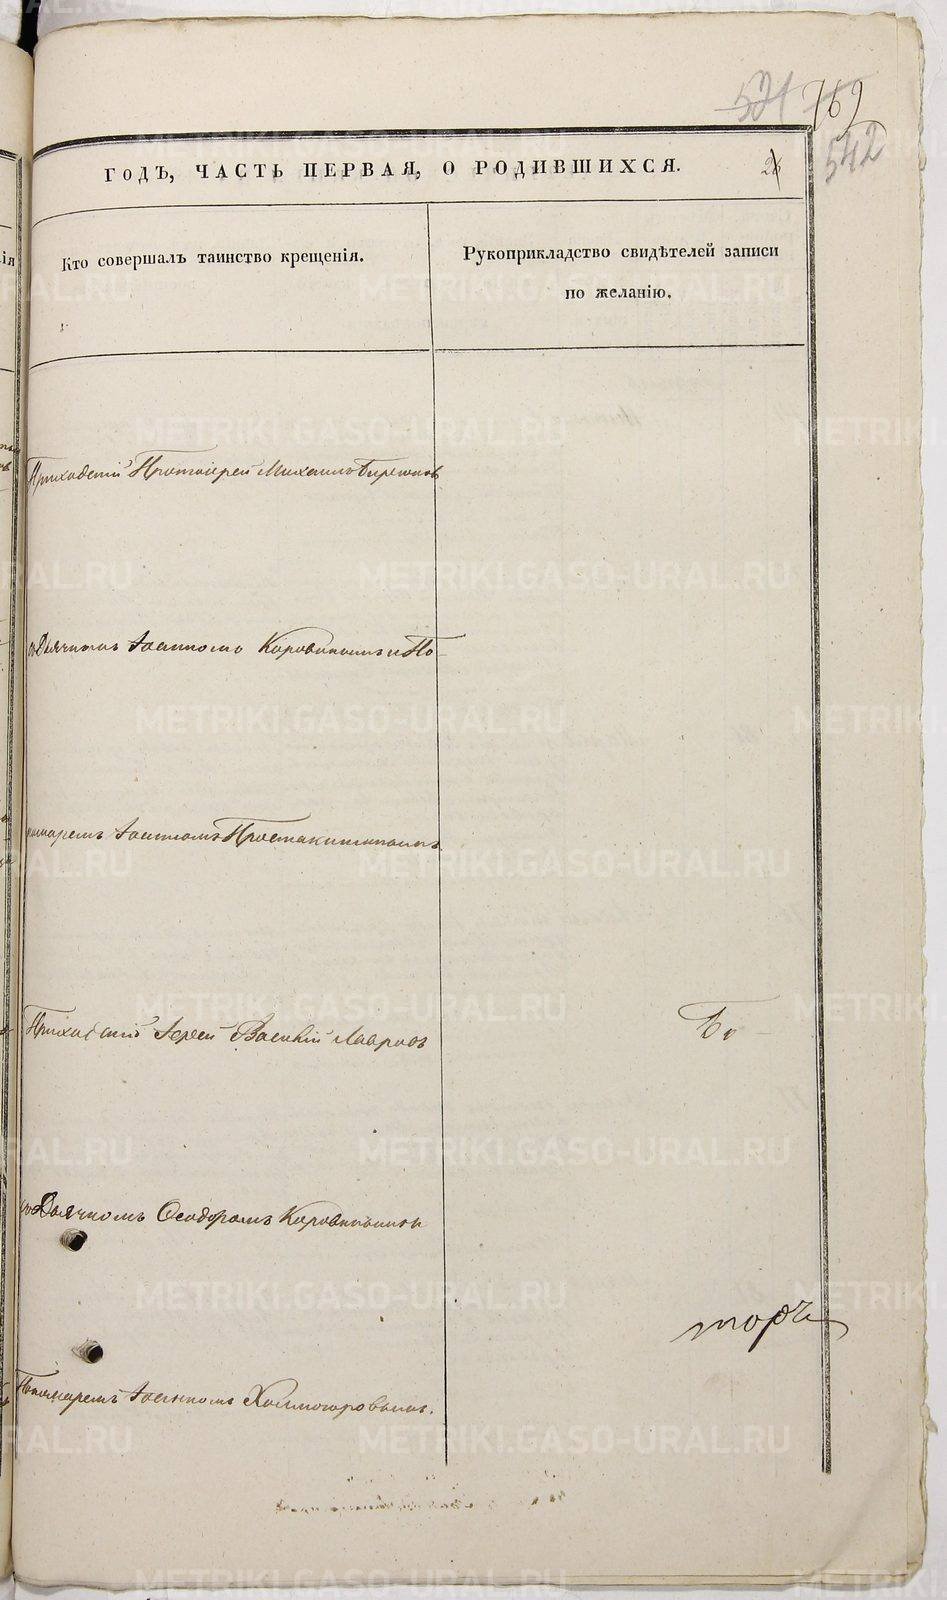 531 769
542
ГОДЪ, ЧАСТЬ ПЕРВАЯ, О РОДИВШИХСЯ.
Кто совершалъ таинство крещенія.
Рукоприкладство свидѣтелей записи
по желанію.
Приходскій Протоіерей Михаилъ Бирюков
съ Дьячкомъ Іоанномъ Коровинымъ и По-
номаремъ Іоанномъ
Приходскій Іерей Василій Лавровъ
съ Дьячкомъ Ѳеодоромъ Коровинымъ и
Пономаремъ Іоанномъ Холмогоровымъ.
METRIKI.GASO-URAL.RU